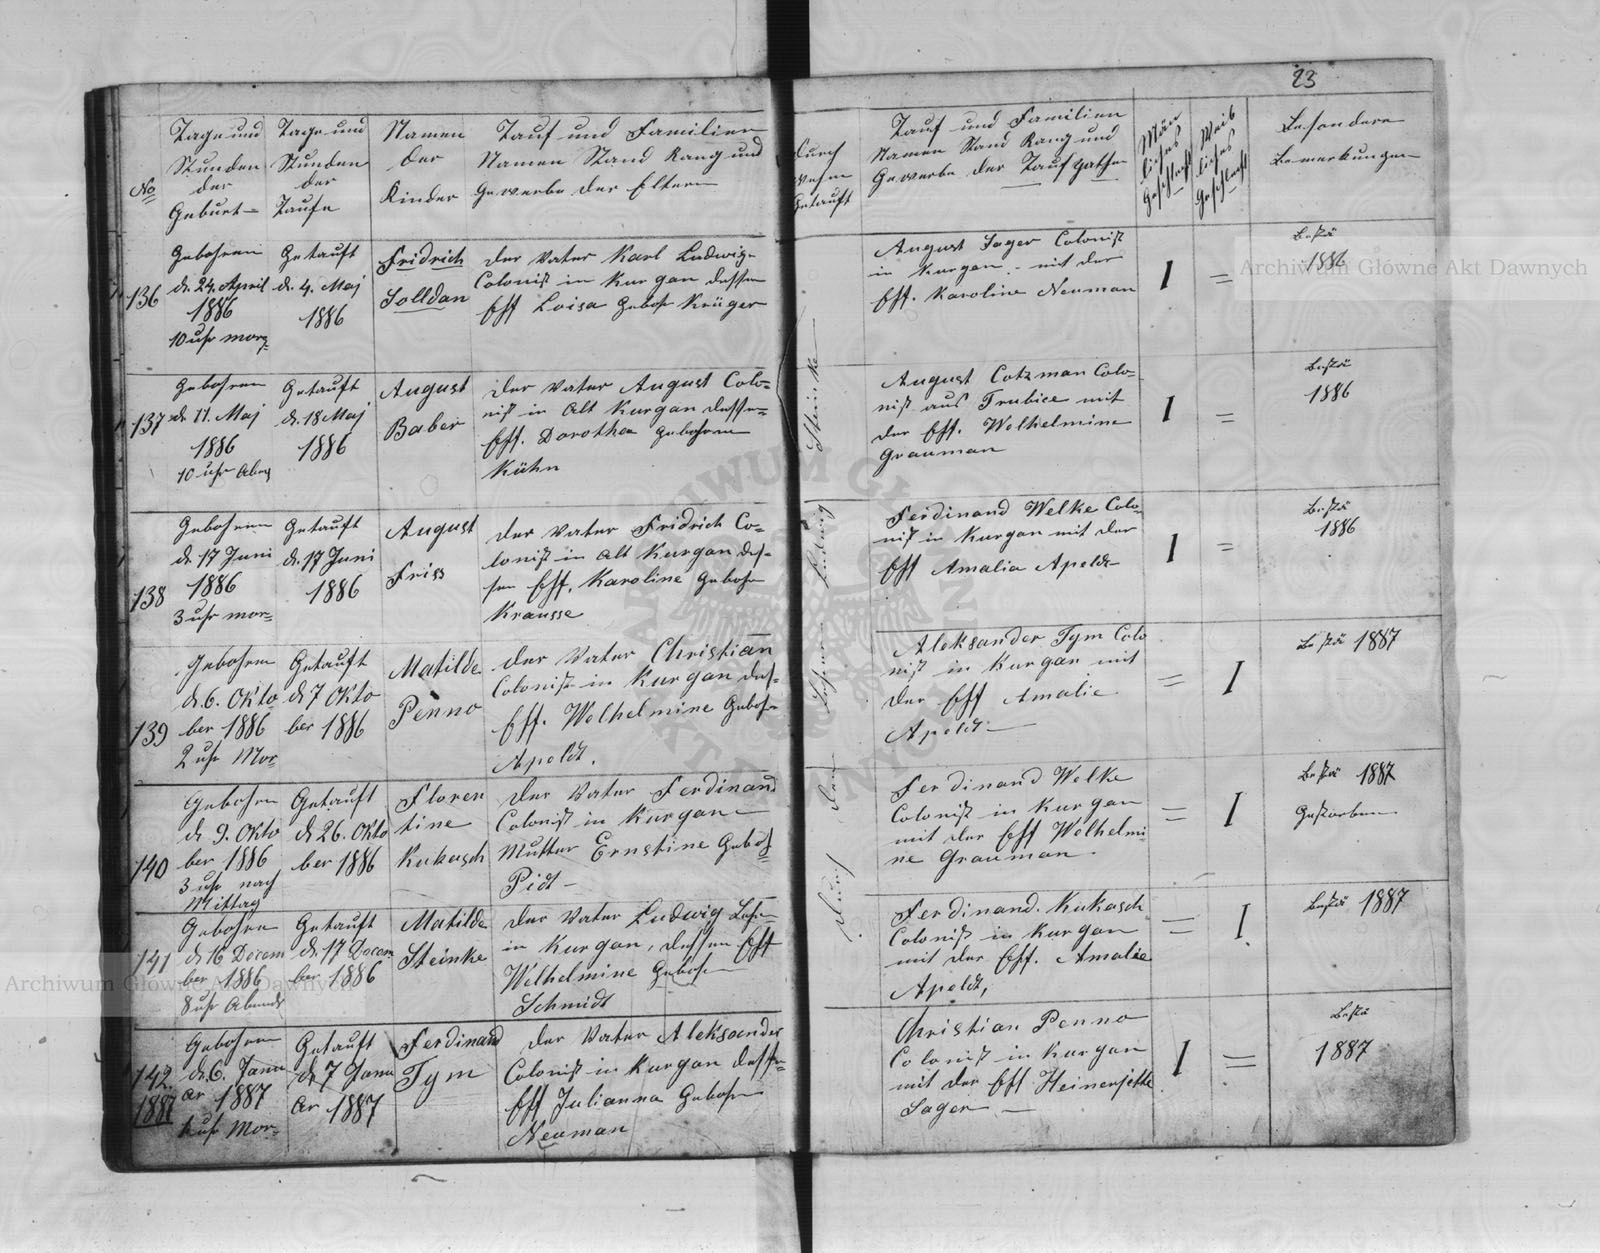 23
No
Tage und
Stunden
der
Geburt
Tage und
Stunden
der
Taufe
Namen
der
Kinder
Tauf und Familien
Namen Stand Rang und
Gewerbe der Eltern
durch
wehm
Getauft
Tauf und Familien
Namen Stand Rang und
Gewerbe der Taufpathen
Män
liches
Geschlecht
Weib
liches
Geschlecht
Besondere
Bemerkungen
136
Gebohren
d. 24. April
1886
10 uhr morg
Getauft
d. 4. Maj
1886
Fridrich
Solldan
Der Vater Karl Ludwig
Colonist in Kurgan dessen
Eff Loisa Geboh Krüger
August Sager Colonist
in Kurgan mit der
Eff. Karoline Neuman
I
=
1886
137
Gebohren
d. 11. Maj
1886
10 uhr Abng
Getauft
d. 18 Maj
1886
August
Baber
Der Vater August Colo=
nist in Alt Kurgan desse=
Eff. Dorothea Gebohren
Kühn
August Cotzman Colo-
nist aus Trubice mit
der Eff. Welhelmine
Grauman
I
=
1886
138
Gebohren
d. 17 Juni
1886
3 uhr mor=
Getauft
d. 17 Juni
1886
August
Friss
Der Vater Fridrich Co-
lonist in Alt Kurgan des-
sen Eff. Karoline Geboh
Krausse
Ferdinand Welke Colo-
nist in Kurgan mit der
Eff Amalia Apeldt
I
=
1886
139
Gebohren
d. 6. Okto
ber 1886
2 uhr Mor=
Getauft
d 7 Okto
ber 1886
Matilde
Penno
Der Vater Christian
Colonist in Kurgan des-
Eff. Welhelmine Geboh
Apoldt.
Aleksander Tym Colo
nist in Kurgan mit
der Eff Amalie
Apoldt
=
I
1887
140
Gebohren
d. 9. Okto
ber 1886
3 uhr nach
Mittag
Getauft
d. 26. Okto
ber 1886
Floren
tine
Kukasch
Der Vater Ferdinand
Colonist in Kurgan
Mutter Ernstine Geboh
Pidt
Ferdinand Welke
Colonist in Kurgan
mit der Eff Welhelmi
ne Grauman
=
I
1887
Gestorben
141
Gebohren
d 16 Decem
ber 1886
8 uhr Abends
Getauft
d. 17 Decem
ber 1886
Matilde
Steinke
Der Vater Ludwig
in Kurgan, dessen Eff
Welhelmine Geboh
Schmidt
Ferdinand Kukasch
Colonist in Kurgan
mit der Eff. Amalie
Apoldt,
=
I
1887
142
1887
Gebohren
d. 6. Janu
ar 1887
1 uhr Mor=
Getauft
d 7 Janu
ar 1887
Ferdinand
Tym
Der Vater Aleksander
Colonist in Kurgan desse=
Eff Julianna Geboh
Neuman
Christian Penno
Colonist in Kurgan
mit der Eff Heinerjette
Sager
I
=
1887
Durch den Ludwig Steinke
Archiwum Główne Akt Dawnych
Archiwum Główne Akt Dawnych